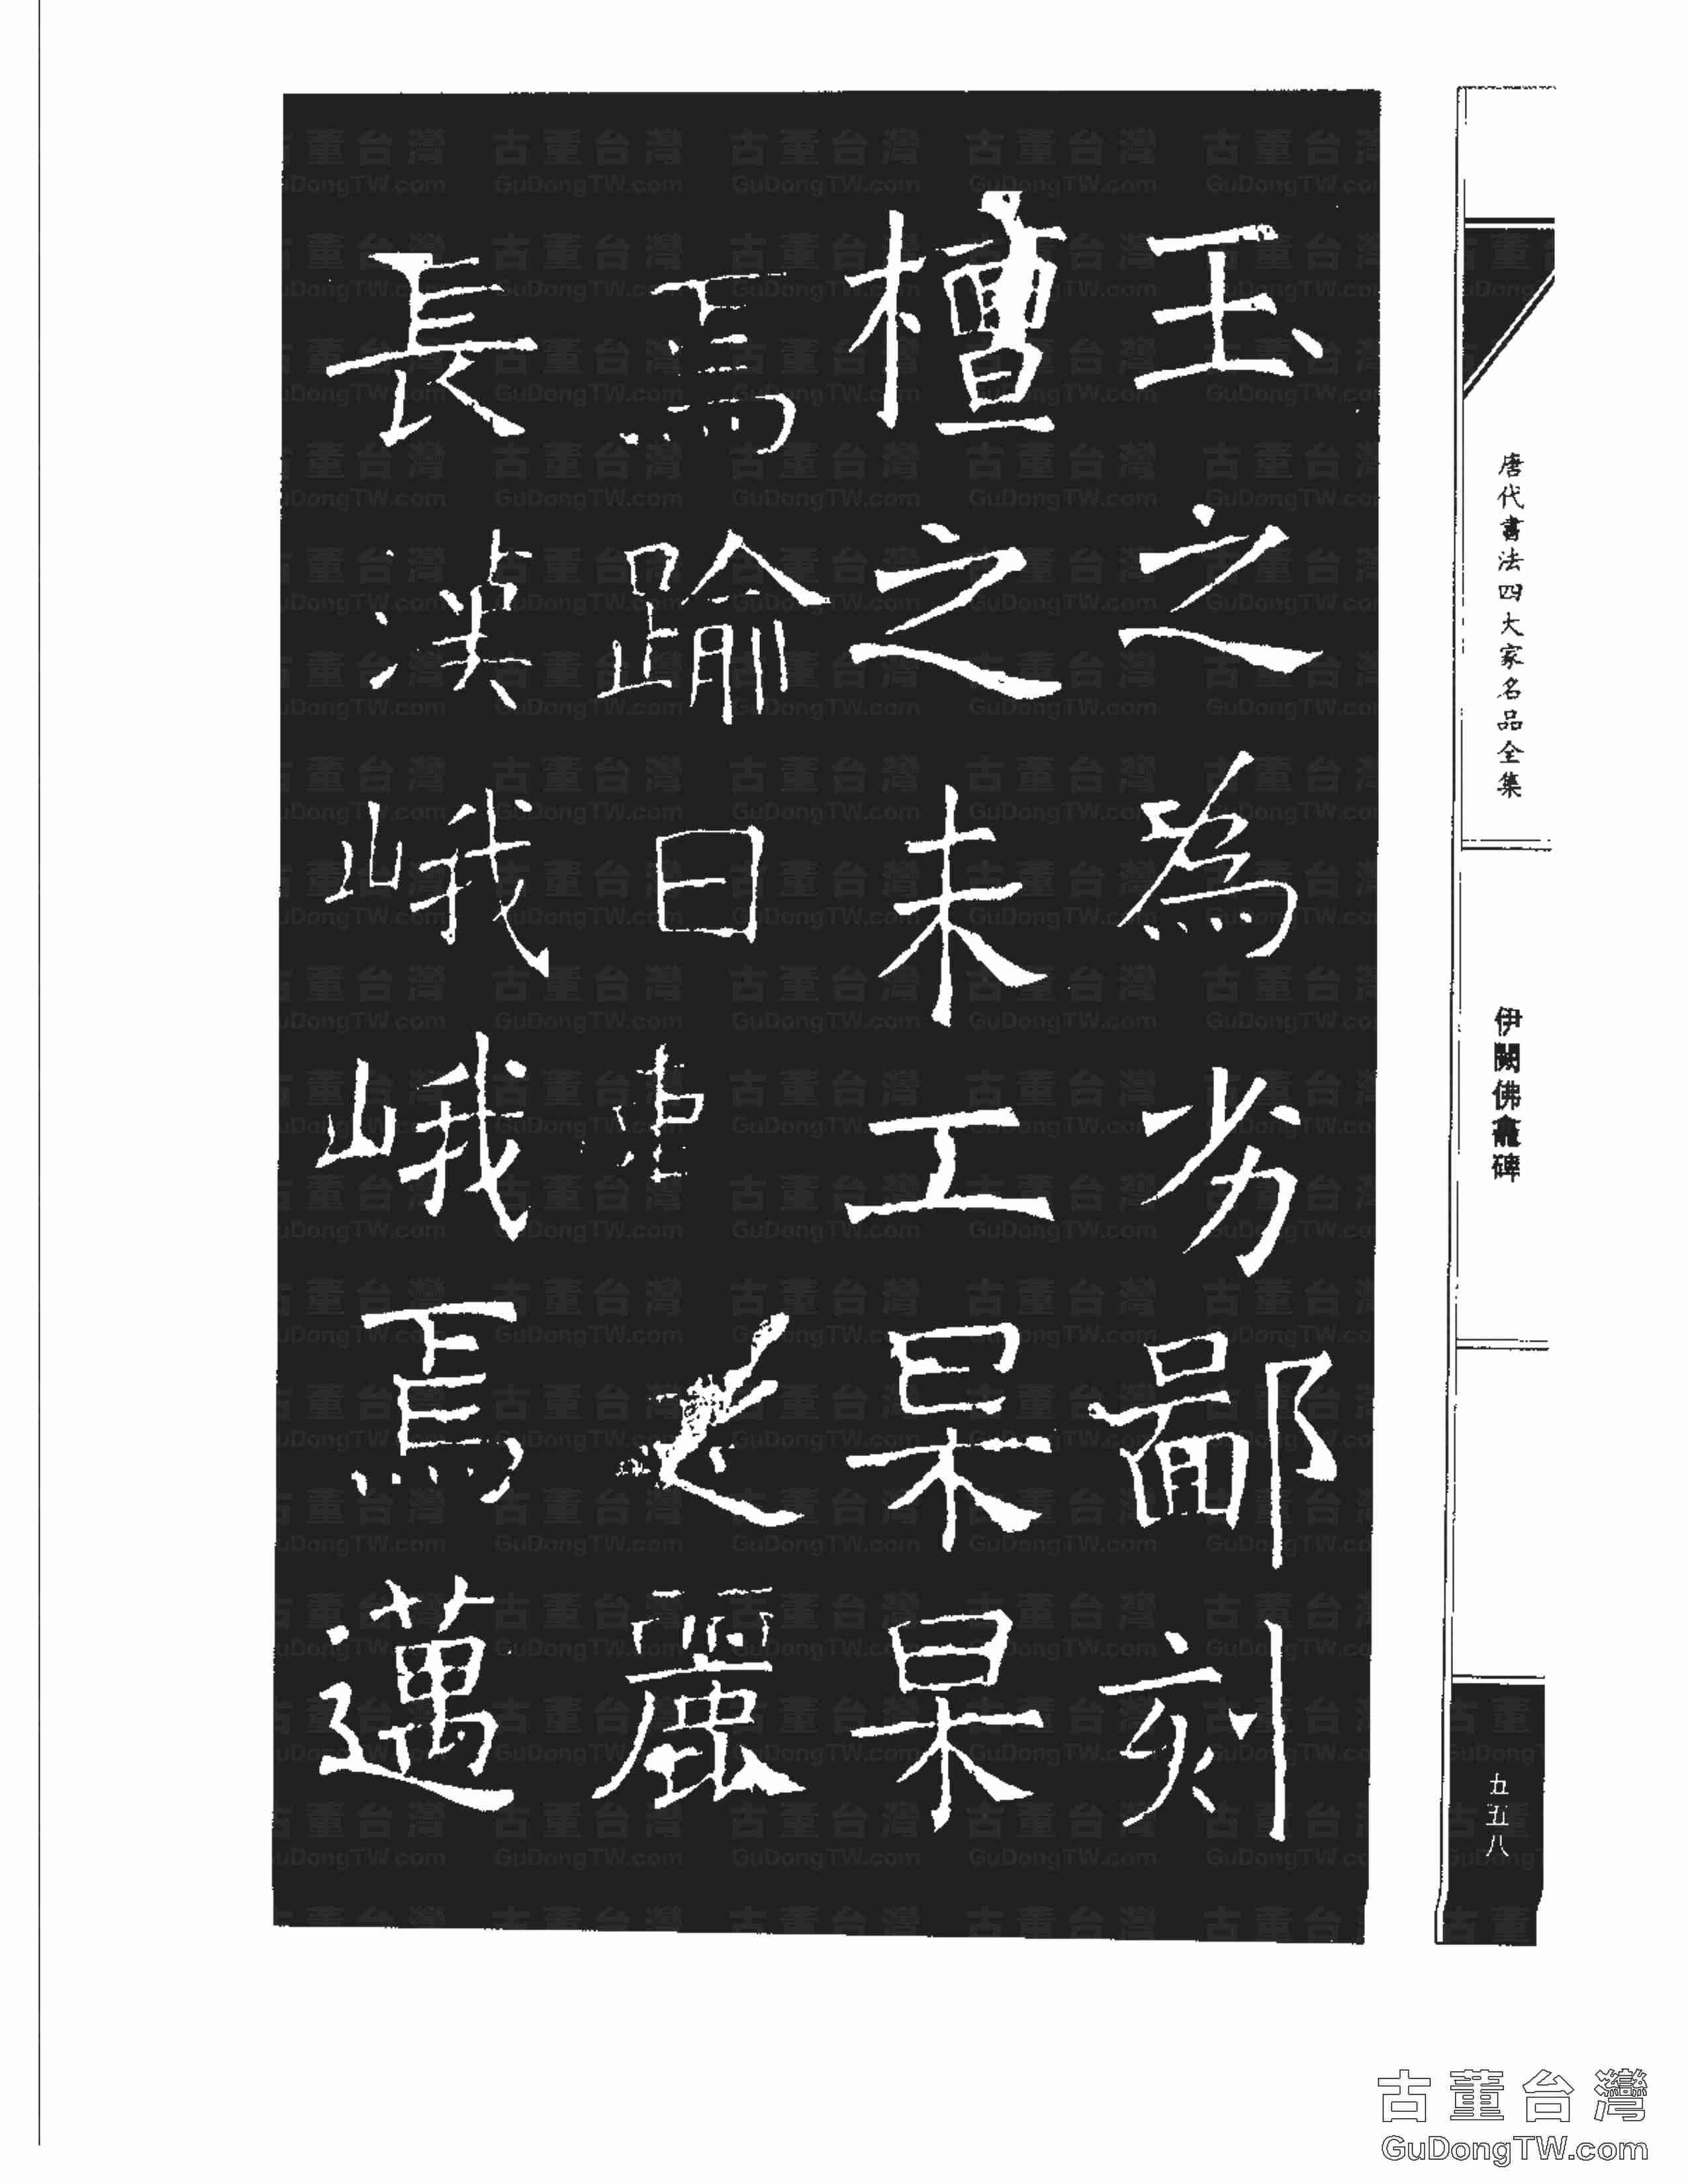 唐代書法四大家名品全集
伊闕佛龕碑
五五八
玉之為劣鄙刻
檀之未工杲杲
焉踰日之麗
長漢峨峨焉邁
古董台灣
GuDongTW.com